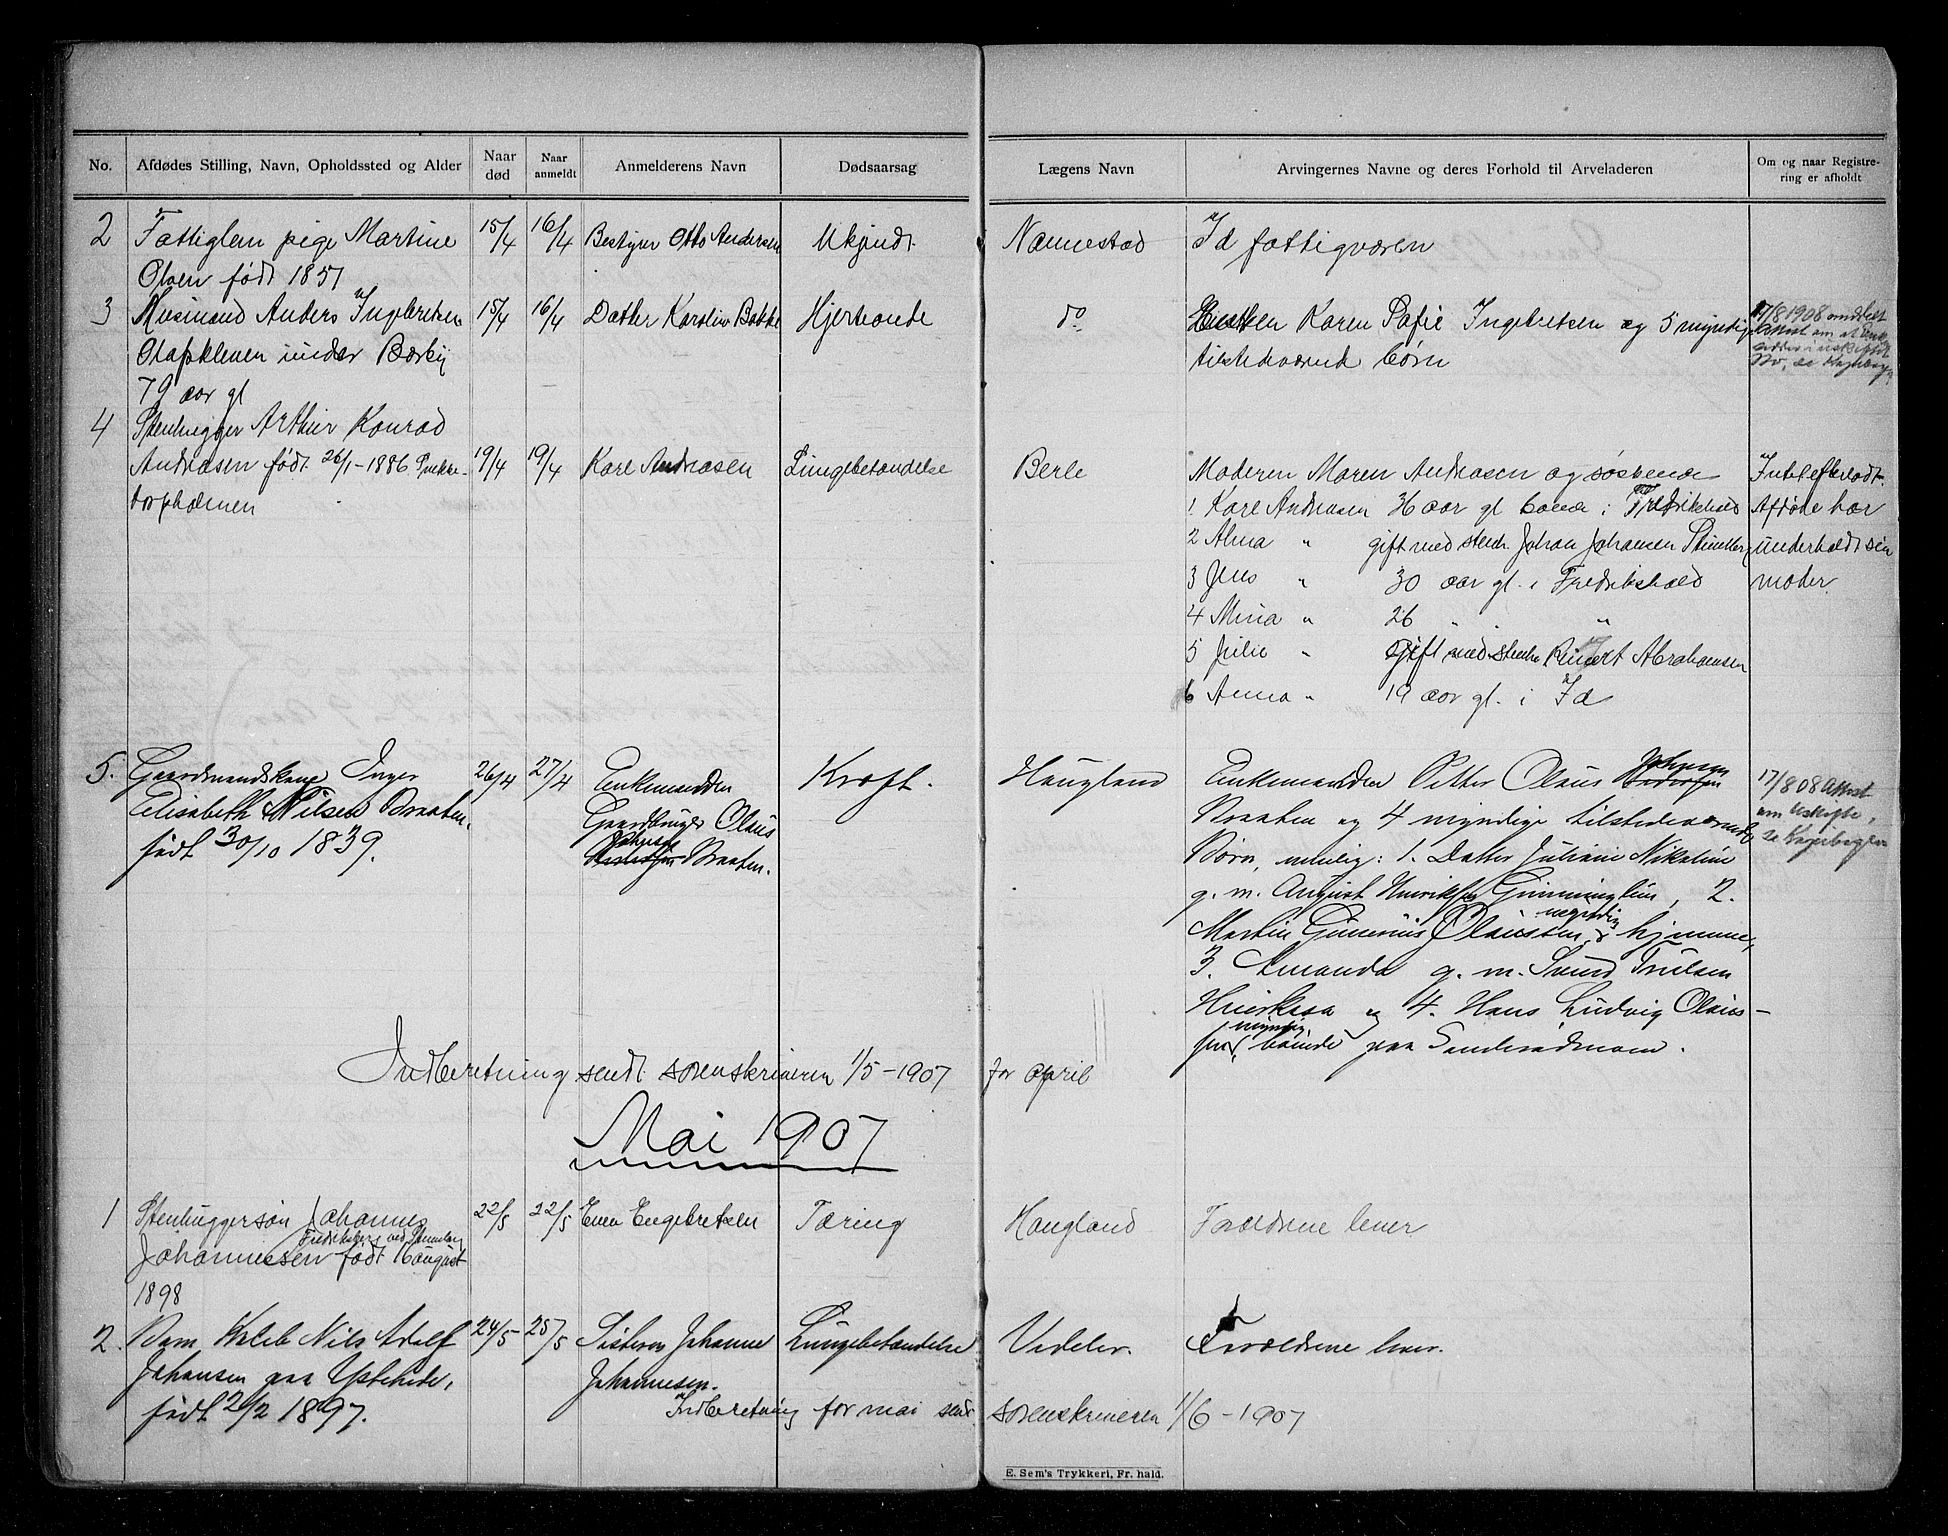 No.
Afdødes Stilling, Navn, Opholdssted og Alder
Naar død
Naar anmeldt
Anmelderens Navn
Dødsaarsag
Lægens Navn
Arvingernes Navne og deres Forhold til Arveladeren
Om og naar Registre-
ring er afholdt
2 Fattiglem pige Martine 15/4 16/4 Bestyrer Otto Andersen Ukjendt Nannestad Id fattigvæsen
Olsen født 1857
3 Husmand Anders Ingebretsen 15/4 16/4 Datter Karoline Bakke Hjerteonde do Enken Karen Sofie Ingebretsen og 5 myndige
Olafskleven under Bærby tilstedeværende børn
79 aar gl
17/8 1908 omdelt
Attest om at Enken
sidder i uskiftet
Bo, se Kopibogen
4 Stenhugger Arthur Konrad
Andreasen født 26/1-1886 19/4 19/4 Karl Andreasen Lungebetændelse Berle Moderen Maren Andreasen og søskende
1 Karl Andreasen 36 aar gl boende i Fredrikshald
2 Alma " gift med stenh. Johan Johansen
3 Jens " 30 aar gl. i Fredrikshald
4 Mina " 26 " "
5 Julie " Gift med stenh Reinert Abrahamsen
6 Anna " 19 aar gl. i Id
Intet efterladt.
Afdøde har
underholdt sin
moder.
5. Gaardmandskone Inger 26/4 27/4 Enkemanden Kræft. Haugland Enkemanden Petter Olaus Johansen
Elisabeth Nilsen Braaten. Gaardbruger Olaus Braaten og 4 myndige tilstedeværende
født 30/10 1839. Johansen Braaten. Børn, nemlig: 1. Datter Juliane Nikoline
g. m. August Henriksen, 2.
Martin Gunerius Olaussen, myndig hjemme,
3. Amanda g. m. Svend Trulsen
og 4. Hans Ludvig Olaus-
sen, myndig, boende paa
17/8 08 Attest
om Uskifte,
se Kopibogen
Indberetning sendt sorenskriveren 1/5-1907 for april
Mai 1907
1 Stenhuggersøn Johannes 22/5 22/5 Even Engebretsen Tæring Haugland Forældrene lever
Johannessen født 16 august
1898
2. Barn Kaleb Nils Adolf 24/5 25/5 Søsteren Johanne Lungebetændelse Vedeler. Forældrene lever.
Johansen paa Ystehede, Johannesen.
født 2/2 1897.
Indberetning for mai sendt sorenskriveren 1/6-1907
E. Sem's Trykkeri, Fr. hald.